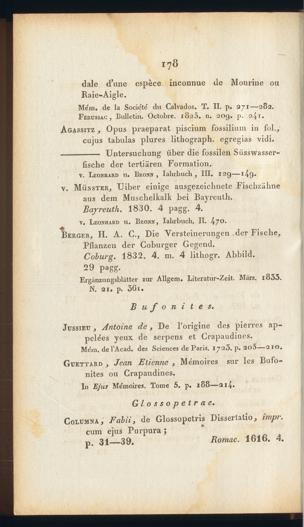 178
dale d'une espèce inconnue de Mourine ou
Raie-Aigle.
Mém. de la Société du Calvados. T. II. p. 271—282.
Ferussac, Bulletin. Octobre. 1825. n. 209. p. 241.
Agassitz, Opus praeparat piscium fossilium in fol.,
cujus tabulas plures lithograph. egregias vidi.
——— Untersuchung über die fossilen Süsswasser-
fische der tertiären Formation.
v. Leonhard u. Bronn, Iahrbuch, III. 129—149.
v. Münster, Uiber einige ausgezeichnete Fischzähne
aus dem Muschelkalk bei Bayreuth.
Bayreuth. 1830. 4 pagg. 4.
v. Leonhard u. Bronn, Iahrbuch, II. 470.
Berger, H. A. C., Die Versteinerungen der Fische,
Pflanzen der Coburger Gegend.
Coburg. 1832. 4. m. 4 lithogr. Abbild.
29 pagg.
Ergänzungsblätter zur Allgem. Literatur-Zeit. März. 1833.
N. 21. p. 361.
Bufonites.
Jussieu, Antoine de, De l'origine des pierres ap-
pelées yeux de serpens et Crapaudines.
Mém. de l'Acad. des Sciences de Paris. 1723. p. 205—210.
Guettard, Jean Etienne, Mémoires sur les Bufo-
nites ou Crapaudines.
In Ejus Mémoires. Tome 5. p. 188—214.
Glossopetrae.
Columna, Fabii, de Glossopetris Dissertatio, impr.
cum ejus Purpura;
p. 31—39. Romae. 1616. 4.